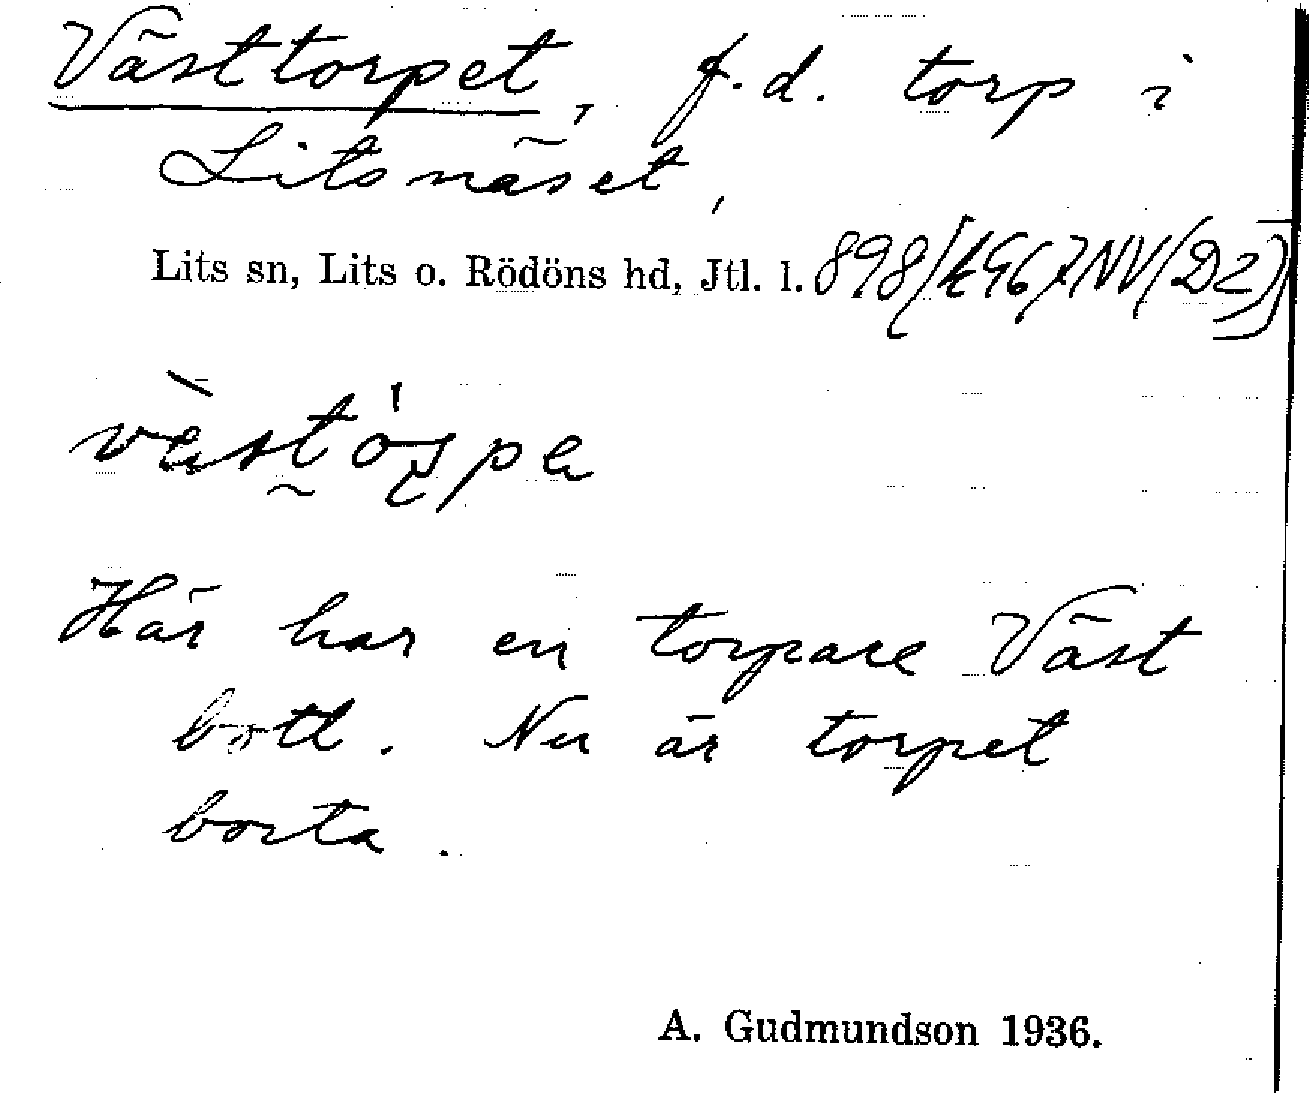 Västtorpet, f.d. torp i
Litsnäset,
Lits sn, Lits o. Rödöns hd, Jtl. l.
Här har en torpare Väst
bott. Nu är torpet
borta.
A. Gudmundson 1936.